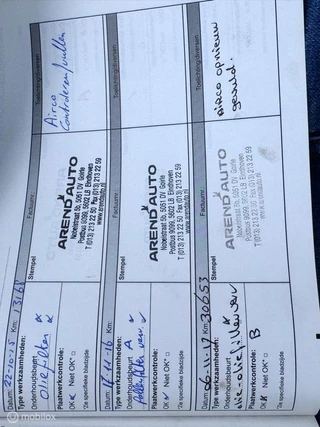 Datum: 22-10-15 Km:
Type werkzaamheden:
Onderhoudsbeurt
oliefilter
Plaatwerkcontrole:
OK Niet OK*
*Zie specifieke bladzijde
Stempel
Factuurnr.
AREND AUTO
Nobelstraat 6b, 5051 DV Goirle
Postbus 9090, 5602 LB Eindhoven
T (013) 213 22 50 Fax (013) 213 22 59
Toelichting/diversen
Airco
Controleren/vullen
Datum: 11-16 Km:
Type werkzaamheden:
Onderhoudsbeurt A
Plaatwerkcontrole:
OK Niet OK*
*Zie specifieke bladzijde
Stempel
Factuurnr.
AREND AUTO
Nobelstraat 6b, 5051 DV Goirle
Postbus 9090, 5602 LB Eindhoven
T (013) 213 22 50 Fax (013) 213 22 59
Toelichting/diversen
Datum: 11-17 Km: 30653
Type werkzaamheden:
Onderhoudsbeurt
Plaatwerkcontrole: B
OK Niet OK*
*Zie specifieke bladzijde
Stempel
Factuurnr.
AREND AUTO
Nobelstraat 6b, 5051 DV Goirle
Postbus 9090, 5602 LB Eindhoven
T (013) 213 22 50 Fax (013) 213 22 59
Toelichting/diversen
AIRCO opnieuw
gevuld.
Mobylio